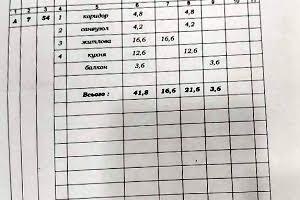 1 2 3 4 5 6 7 8 9 10 11
А 7 54 1 коридор 4,8 4,8
2 санвузол 4,2 4,2
3 житлова 16,6 16,6
4 кухня 12,6 12,6
балкон 3,6 3,6
Всього : 41,8 16,6 21,6 3,6